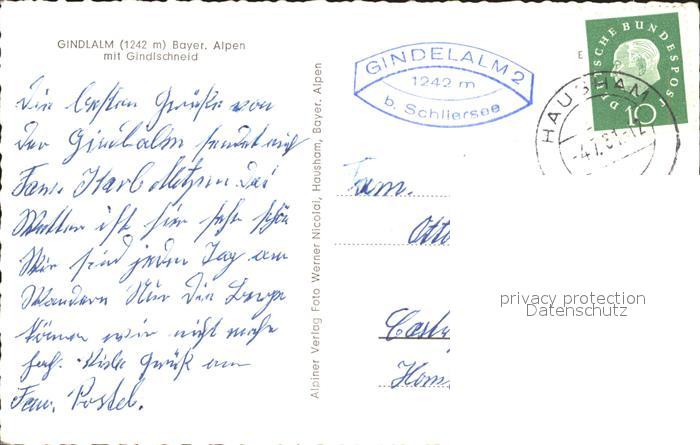 GINDLALM (1242 m) Bayer. Alpen
mit Gindlschneid
Die besten Grüße von
der Gindlalm sendet euch
Fam. Karl
Wetter ist hier sehr schön
Wir sind jeden Tag am
Wandern Nur die Berge
können wir nicht mehr
Viele Grüße an
Fam. Postel.
Alpiner Verlag Foto Werner Nicolai, Hausham, Bayer. Alpen
GINDELALM 2
1242 m
b. Schliersee
DEUTSCHE BUNDESPOST
10
HAUSHAM
-4.7.61-12
Fam.
Otto
Castr
Hom
privacy protection
Datenschutz